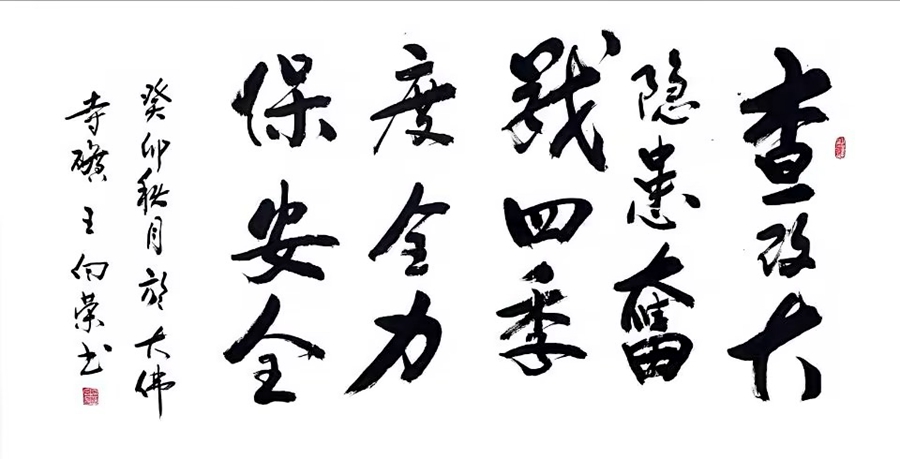 查改大
隐患奋
战四季
度全力
保安全
癸卯秋月於大佛
寺礦王向荣书